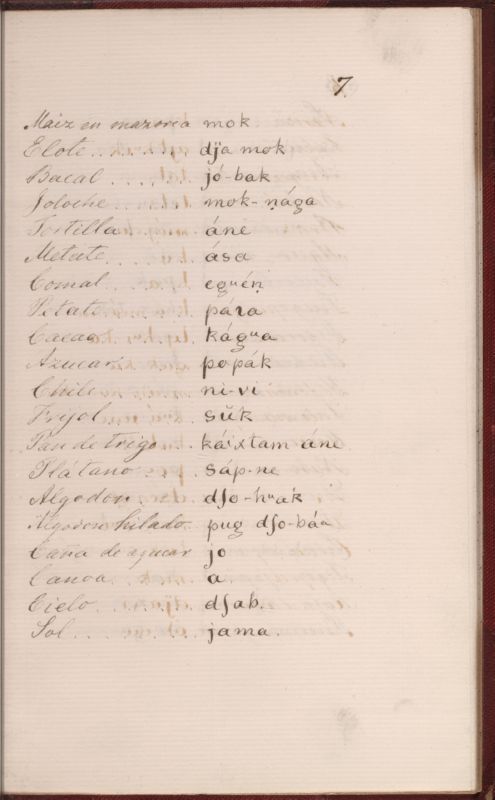 7.
Maiz en mazorca mok
Elote . . . . . . . . . dja mok
Bacal . . . . . . jó-bak
Joloche . . . . . mok-ņága
Tortilla áne
Metate . . . . . ása
Comal . . . . . . egᵘéņ
Petate . . . . . . páɿa
Cacao kágᵘa
Azucar popák
Chile ni-vi
Frijol . . . . . . sŭk
Pan de trigo . . káixtam áne
Plátano . . . sáp-ne
Algodon dʃo-hᵘak
Algodon hilado pug dʃo-báa
Caña de azucar jo
Canoa . . . . . . a.
Cielo . . . . . . dʃab.
Sol . . . . . . . . . jama.